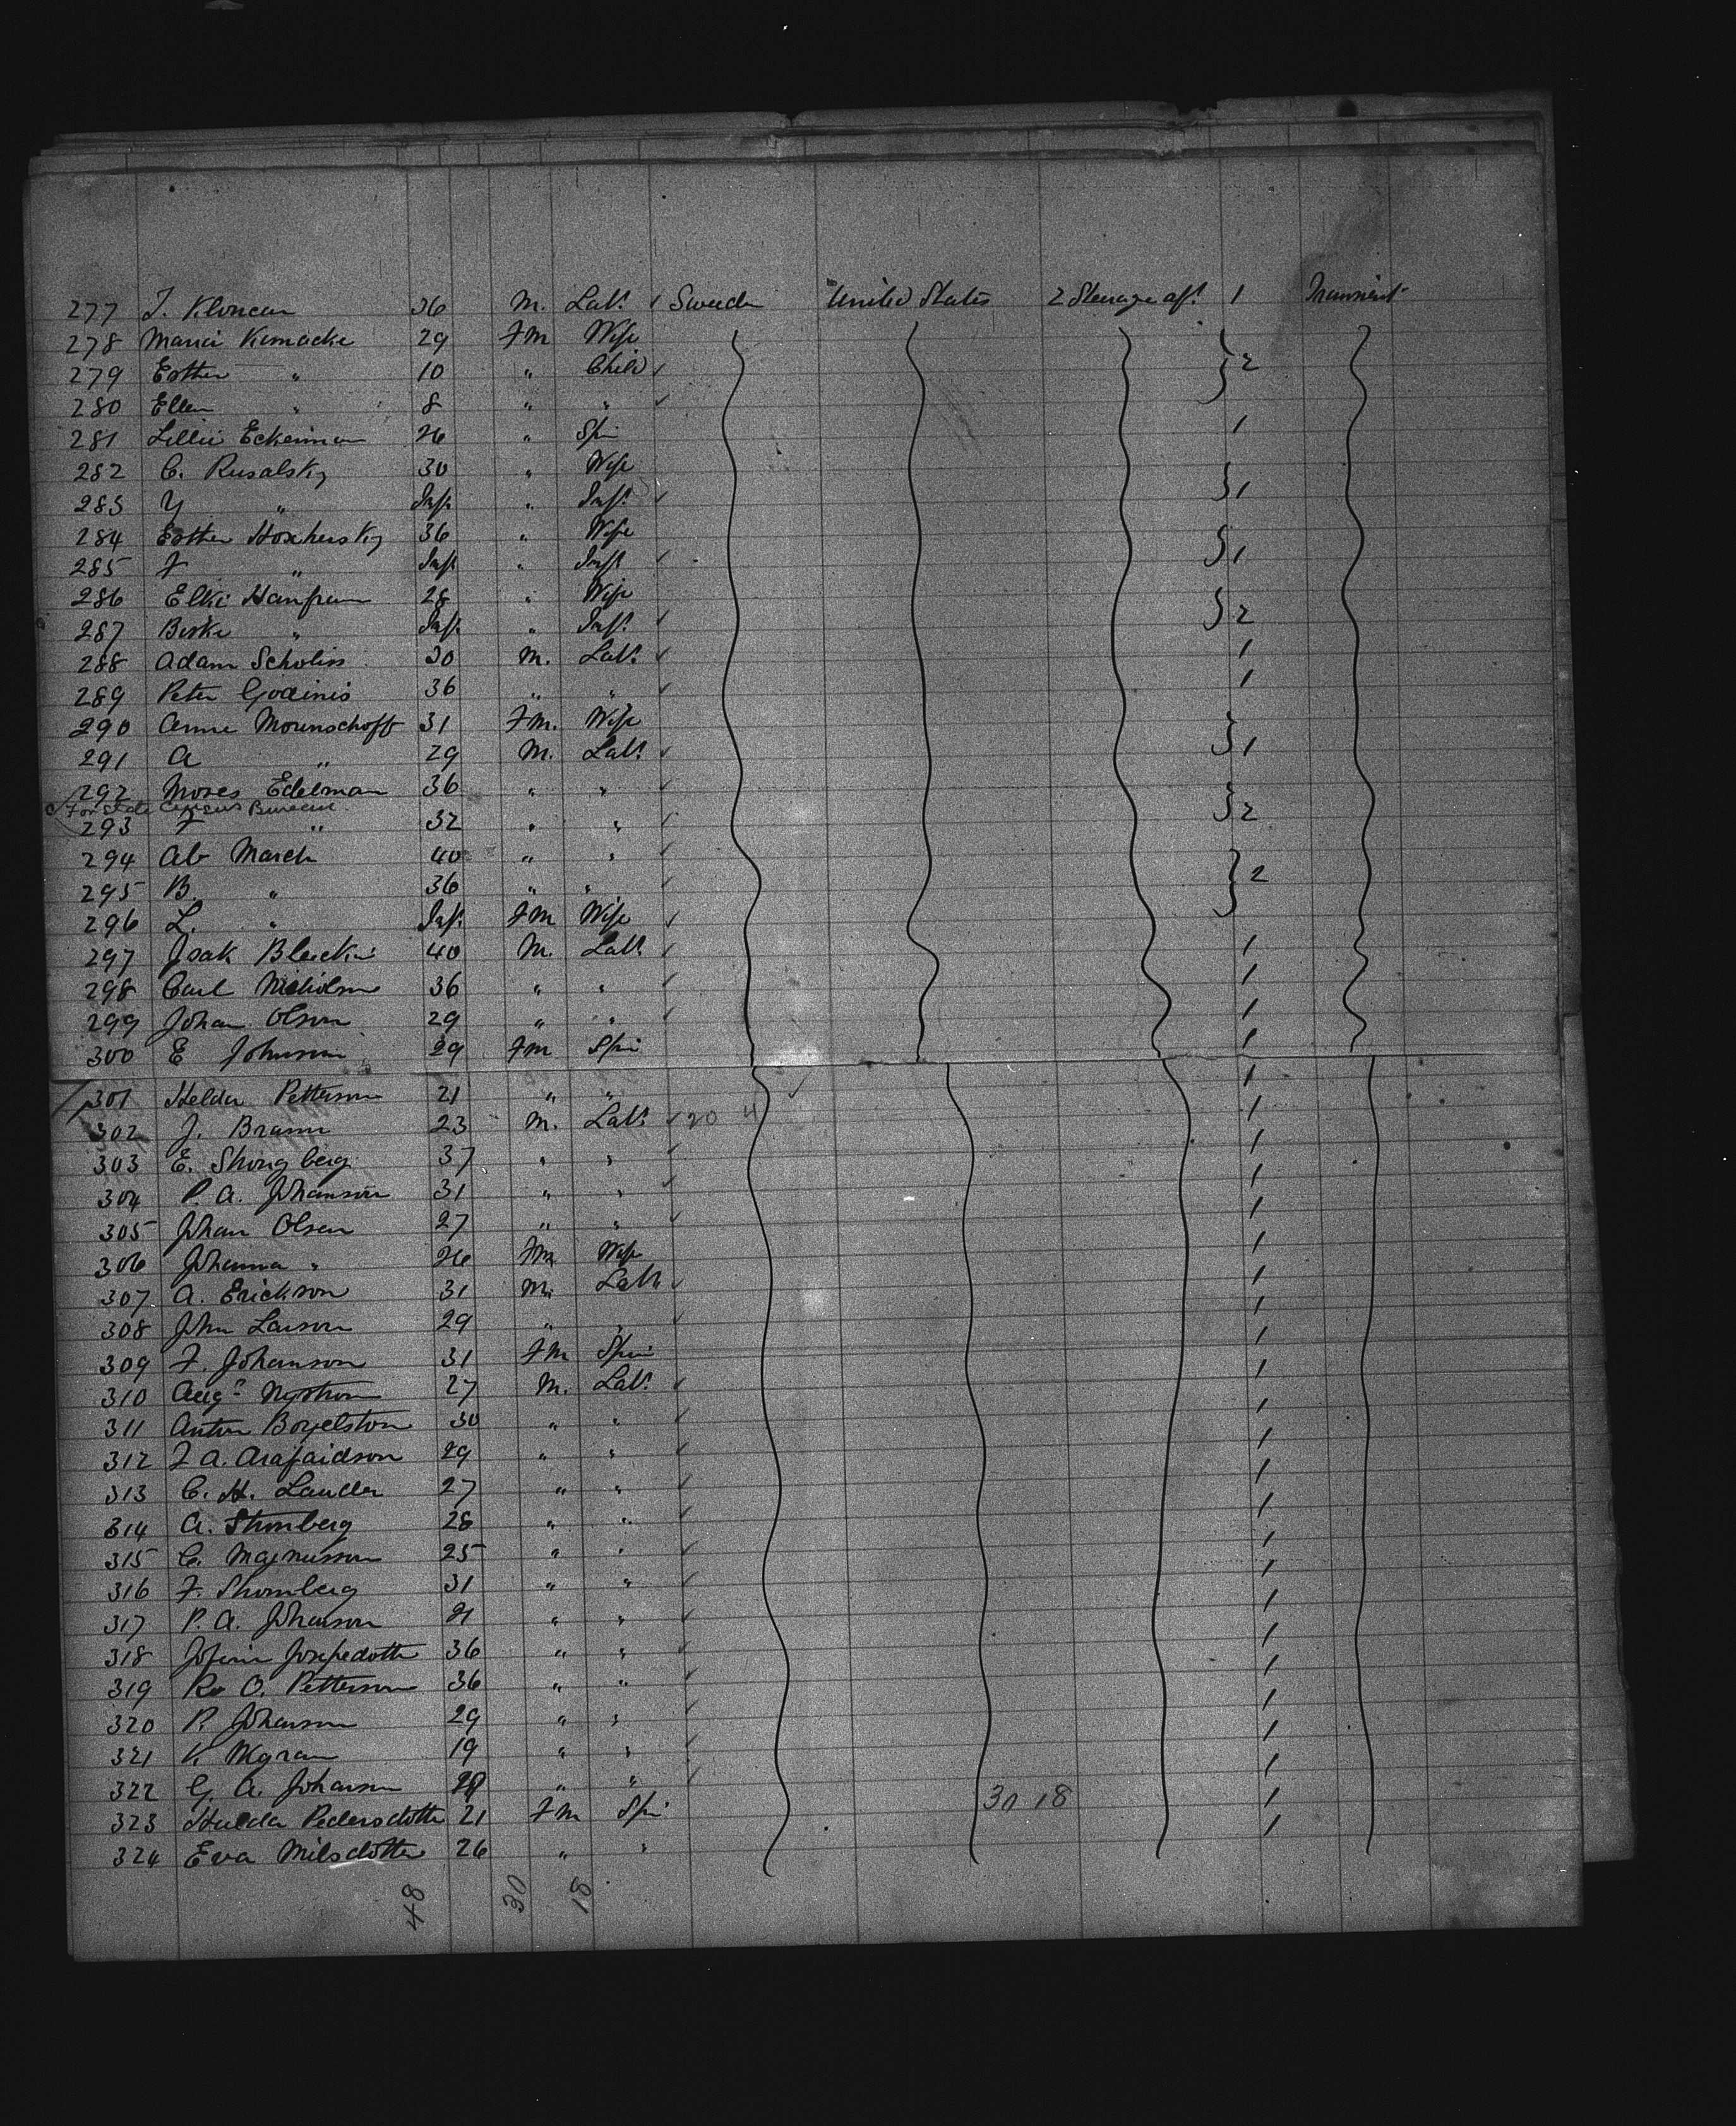 277 J. Kloncan 36 M. Labr ✓ Sweden United States 2 Steerage aft 1 Transient
278 Maria Kemacke 29 Fm Wife } 2
279 Esther " 10 " Child ✓
280 Ellen " 8 " " ✓
281 Lillie Eckerman 26 " Spi 1
282 C. Rusalsky 30 " Wife } 1
283 Y " Inft " Inft ✓
284 Esther Hoschersky 36 " Wife } 1
285 F " Inft " Inft ✓
286 Elki Hanfrum 28 " Wife } 2
287 Beske " Inft " Inft ✓
288 Adam Scholiss 30 M. Labr ✓ 1
289 Peter Godinis 36 " " ✓ 1
290 Anne Mounschoff 31 Fm. Wife } 1
291 A " 29 M. Labr ✓
292 Moses Edelman 36 " " ✓ } 2
For State Census Bureau
293 F " 32 " " ✓
294 Ab March 40 " " ✓ } 2
295 B. " 36 " " ✓
296 L. " Inft Fm Wife ✓
297 Isak Bleckie 40 M. Labr ✓ 1
298 Carl Nicholson 36 " " ✓ 1
299 Johan Olson 29 " " ✓ 1
300 E Johnson 29 Fm Spi 1
301 Helda Petterson 21 " " ✓ 1
302 J. Braun 23 M. Labr ✓ 20 4 1
303 E. Strongberg 37 " " ✓ 1
304 P. A. Johanson 31 " " ✓ 1
305 Johan Olsen 27 " " ✓ 1
306 Johanna " 26 Fm Wife 1
307 A. Erickson 31 M. Labr ✓ 1
308 John Larson 29 " " ✓ 1
309 F. Johanson 31 Fm Spi 1
310 Augt Nystrom 27 M. Labr ✓ 1
311 Anton Boyelston 30 " " ✓ 1
312 J A. Arafaidson 29 " " ✓ 1
313 C. H. Lauder 27 " " ✓ 1
314 A. Stromberg 28 " " ✓ 1
315 C. Magnusson 25 " " ✓ 1
316 F. Stromberg 31 " " ✓ 1
317 P. A. Johanson 21 " " ✓ 1
318 Josefin Josephedotter 36 " " ✓ 1
319 Ro O. Petterson 36 " " ✓ 1
320 P. Johanson 29 " " ✓ 1
321 K. Wgran 19 " " ✓ 1
322 G. A. Johanson " " ✓ 1
323 Hulda Pedersdotter 21 Fm Spi 30 18 1
324 Eva Nilsdotter 26 " " 1
48 30 18